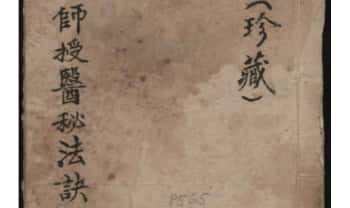 （珍藏）
師授醫秘法訣